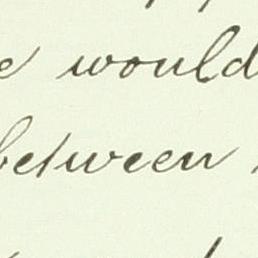 would
between